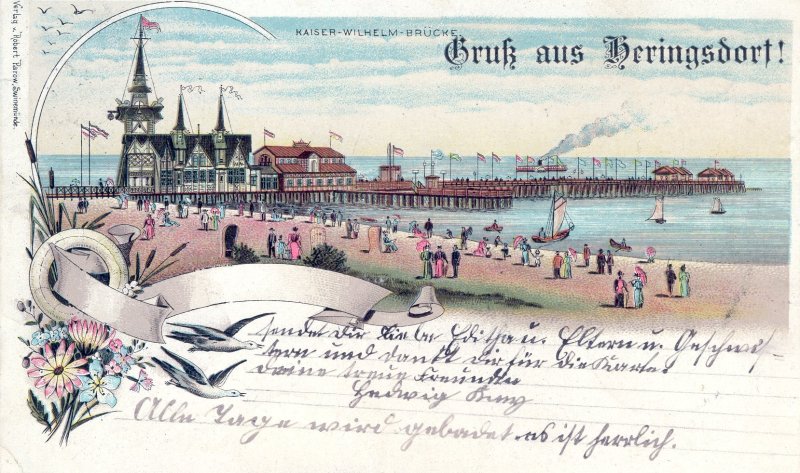 Verlag v. Robert Parow, Swinemünde.
KAISER-WILHELM-BRÜCKE
Gruß aus Heringsdorf!
sendet Dir liebe Editha u. Eltern u. Geschwis-
tern und dankt dir für die Karte.
Deine treue Freundin
Hedwig
Alle Tage wird gebadet es ist herrlich.